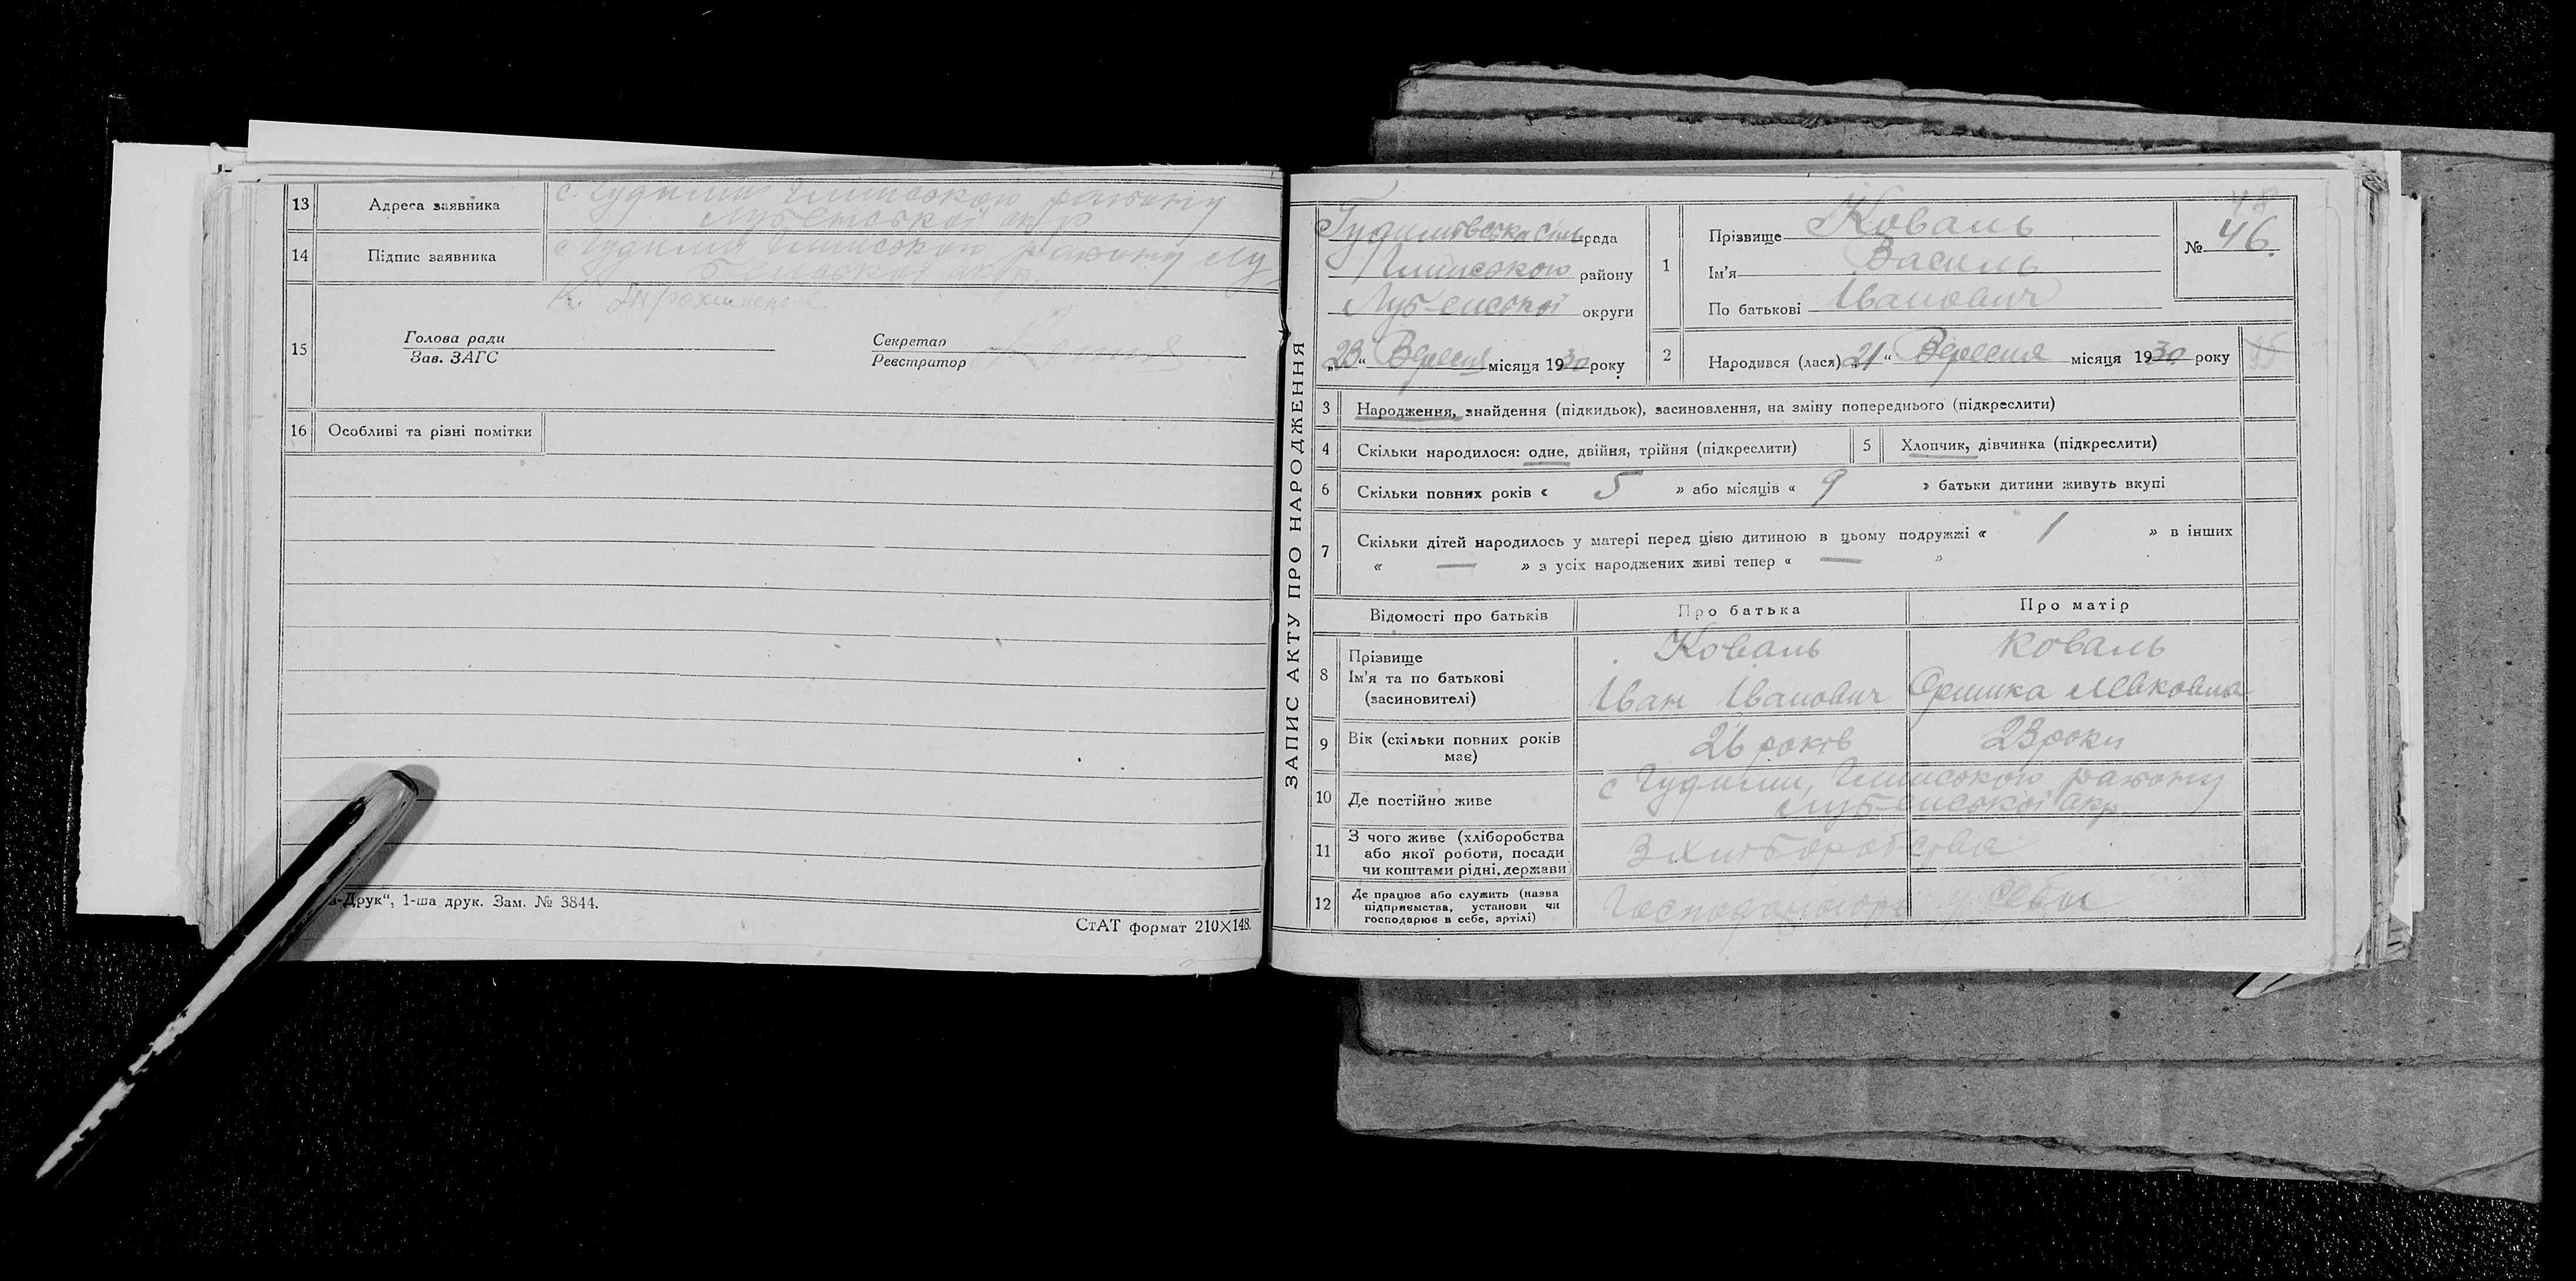 13 Адреса заявника с. Гудими Глинського району
Лубенської окр
14 Підпис заявника с Гудими Глинського району Лу
бенської окр.
К.
15 Голова ради
Зав. ЗАГС
Секретар
Реєстратор
16 Особливі та різні помітки
-Друк“, 1-ша друк. Зам. № 3844.
СтАТ формат 210×148.
ЗАПИС АКТУ ПРО НАРОДЖЕННЯ
Гудимівська сільрада
Глинського району
Лубенської округи
„23“ Вересня місяця 1930 року
48
№ 46.
1 Прізвище Коваль
Ім'я Василь
По батькові Іванович
2 Народився (лася) „21“ Вересня місяця 1930 року
3 Народження, знайдення (підкидьок), засиновлення, на зміну попереднього (підкреслити)
4 Скільки народилося: одне, двійня, трійня (підкреслити) 5 Хлопчик, дівчинка (підкреслити)
6 Скільки повних років « 5 » або місяців « 9 » батьки дитини живуть вкупі
7 Скільки дітей народилось у матері перед цією дитиною в цьому подружжі « 1 » в інших
« — » з усіх народжених живі тепер « — »
Відомості про батьків Про батька Про матір
8 Прізвище Коваль Коваль
Ім'я та по батькові Іван Іванович Оришка
(засиновителі)
9 Вік (скільки повних років 26 років 23 роки
має)
10 Де постійно живе с Гудими, Глинського району
Лубенської окр.
11 З чого живе (хліборобства З хліборобства
або якої роботи, посади
чи коштами рідні, держави)
12 Де працює або служить (назва
підприємства, установи чи
господарює в себе, артілі)
себе